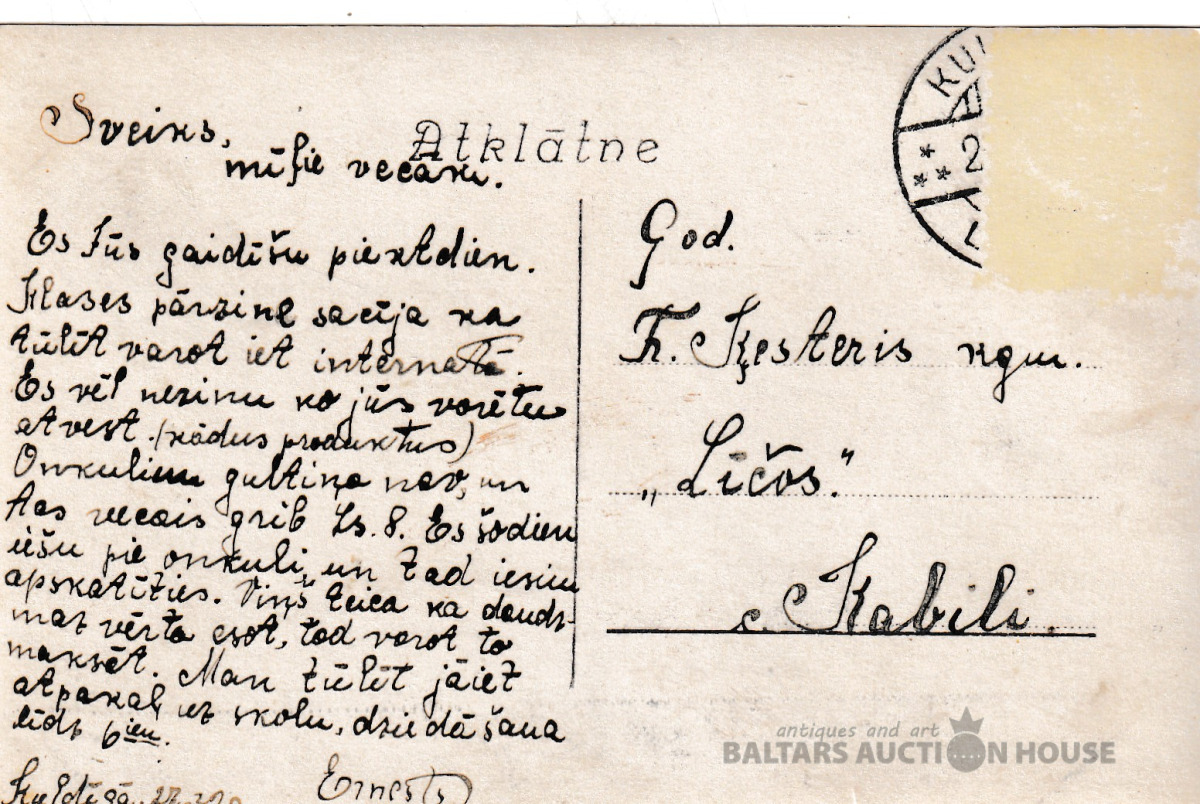 Atklātne
Sveiks,
mīļie vecāki.
Es Jūs gaidīšu piektdien.
Klases pārzine sacīja ka
tūlīt varot iet internatā.
Es vēl nezinu ko jūs varētu
atvest. (kādus produktus)
Onkulim gultiņa nav, un
tas vecais grib Ls. 8. Es šodien
iešu pie onkuli, un tad iesim
apskatīties. Viņš teica ka daudz-
maz vērta esot, tad varot to
maksāt. Man tūlīt jāiet
atpakaļ uz skolu, dziedāšana
līdz 6ien.
Kuldīgā
Ernests
KUL
2
God.
Fr. Ķesteris kgm.
„Līčos."
c. Kabili.
antiques and art
BALTARS AUCTION HOUSE